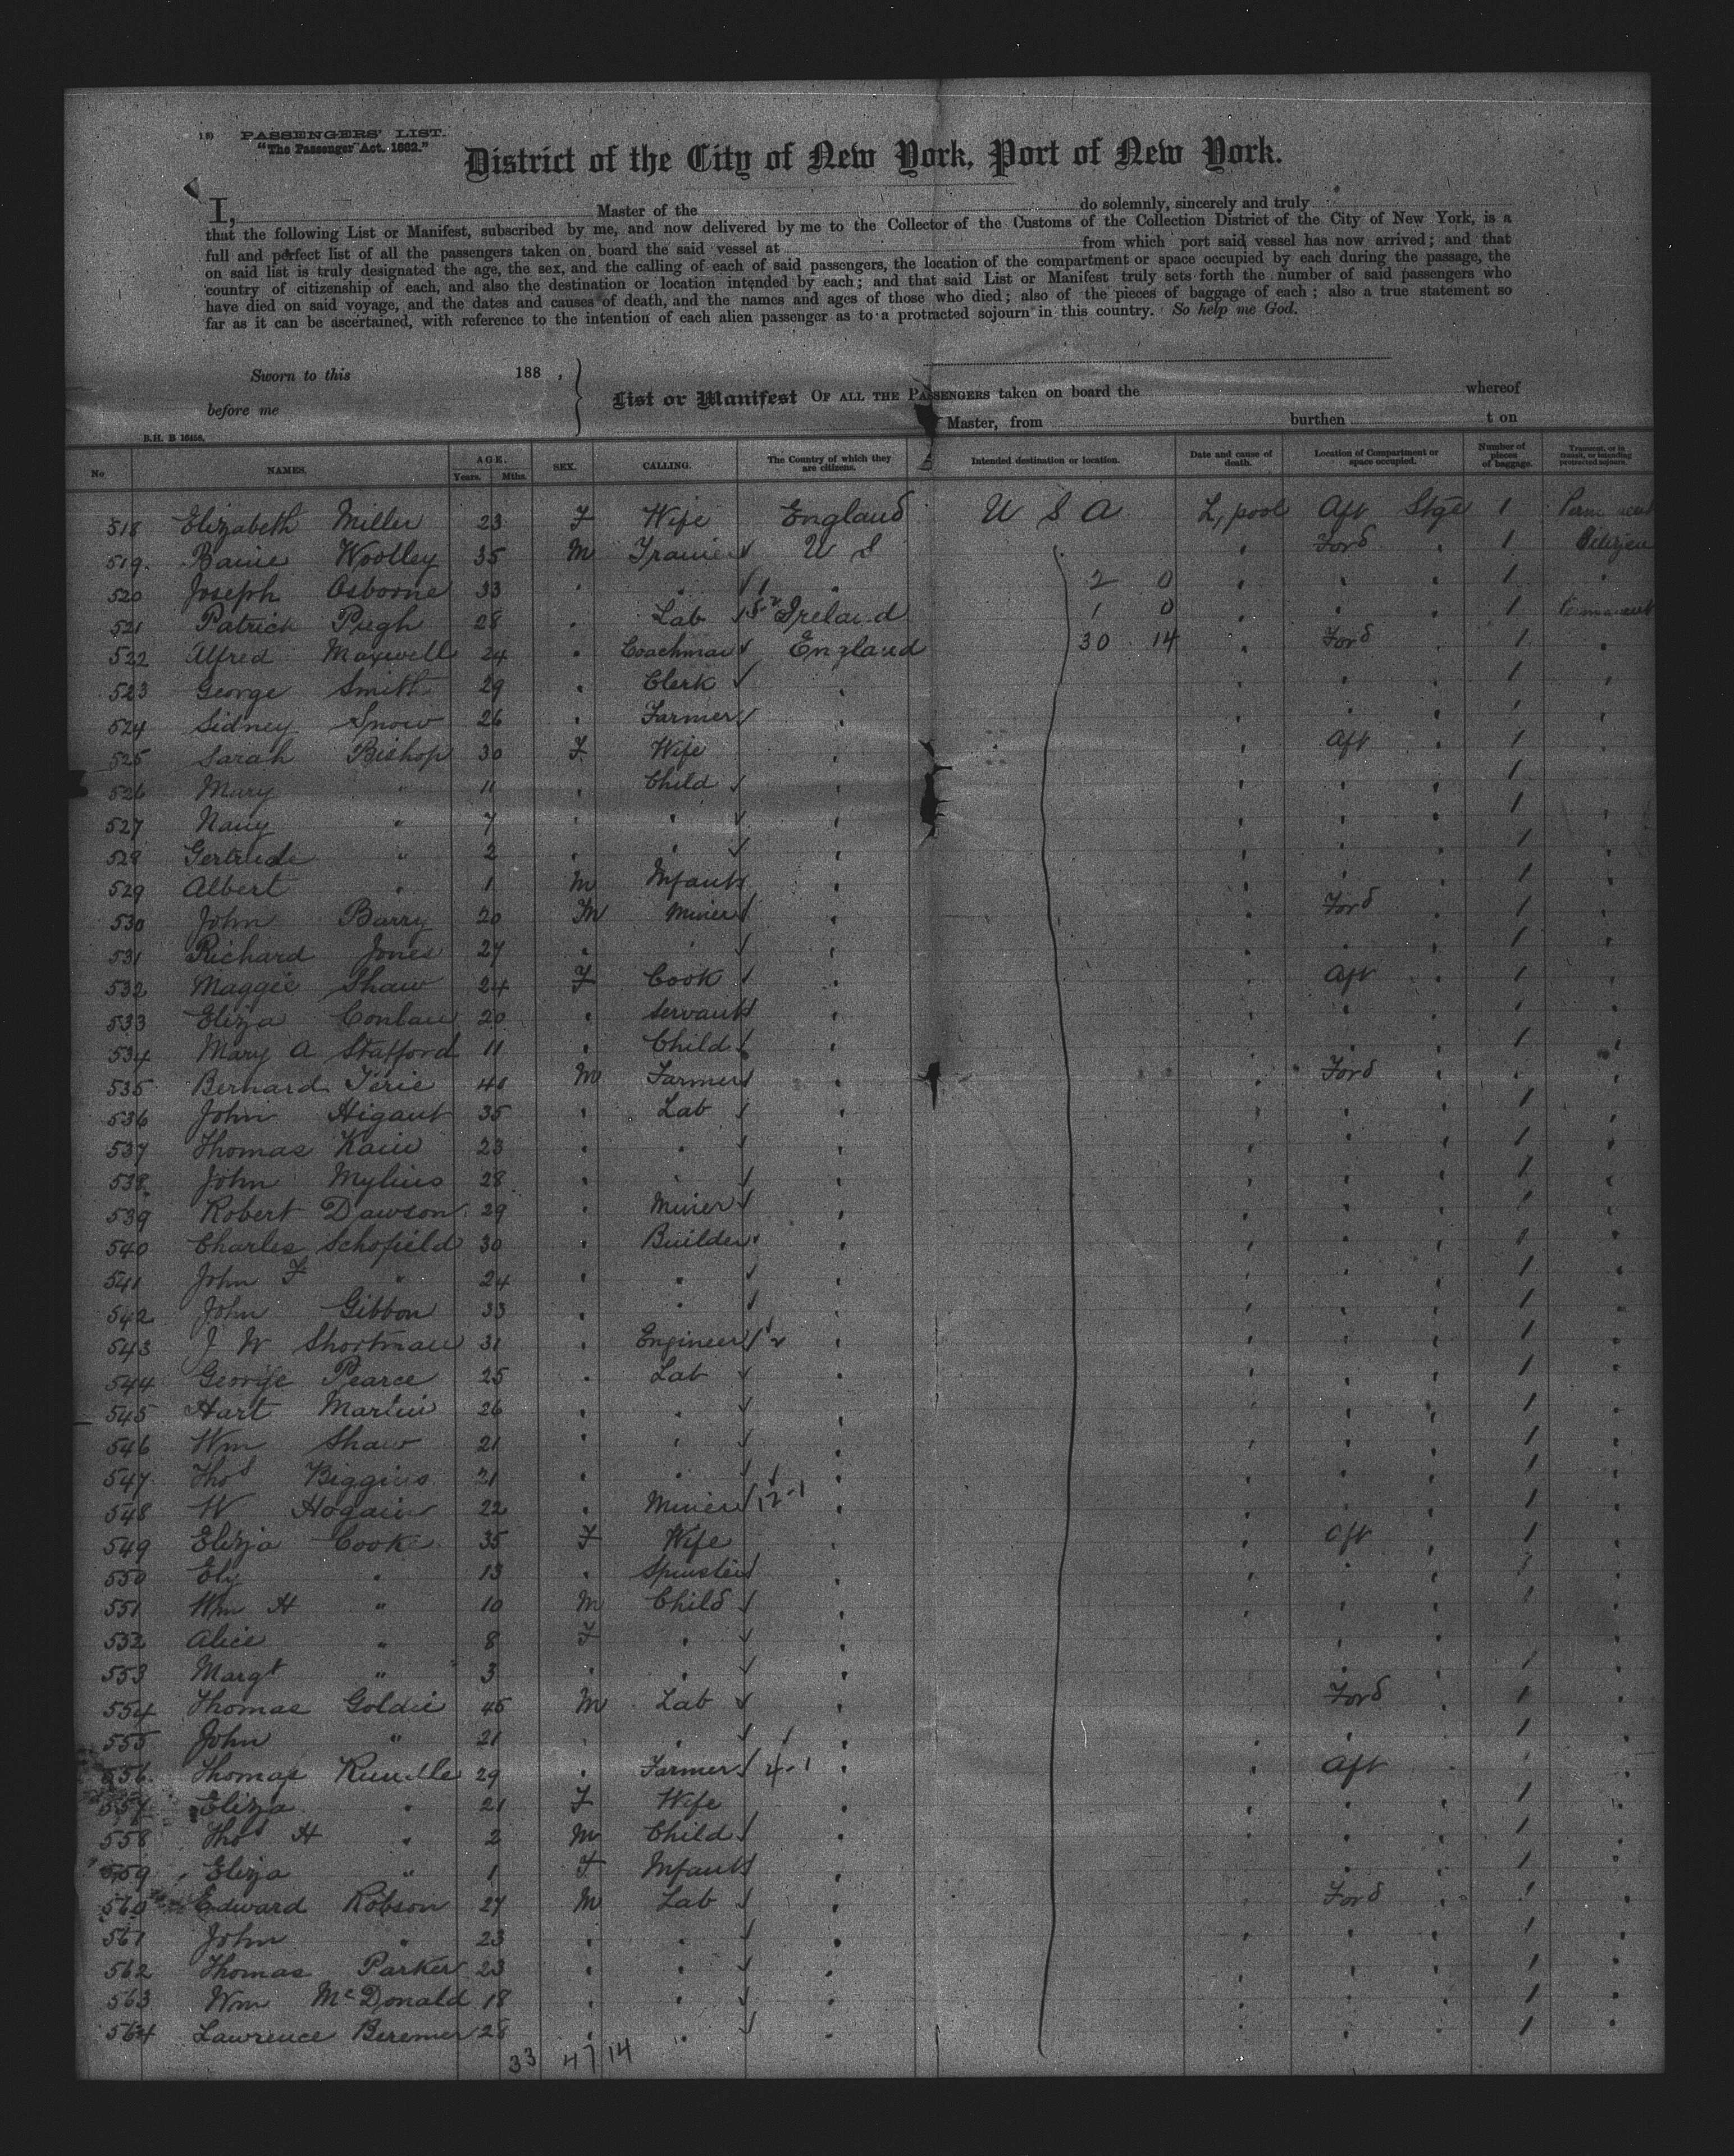 18) PASSENGERS' LIST.
"The Passenger Act, 1882."
District of the City of New York, Port of New York.
I, Master of the do solemnly, sincerely and truly
that the following List or Manifest, subscribed by me, and now delivered by me to the Collector of the Customs of the Collection District of the City of New York, is a
full and perfect list of all the passengers taken on board the said vessel at from which port said vessel has now arrived; and that
on said list is truly designated the age, the sex, and the calling of each of said passengers, the location of the compartment or space occupied by each during the passage, the
country of citizenship of each, and also the destination or location intended by each; and that said List or Manifest truly sets forth the number of said passengers who
have died on said voyage, and the dates and causes of death, and the names and ages of those who died; also of the pieces of baggage of each; also a true statement so
far as it can be ascertained, with reference to the intention of each alien passenger as to a protracted sojourn in this country. So help me God.
Sworn to this 188 ,
before me
List or Manifest OF ALL THE PASSENGERS taken on board the whereof
Master, from burthen t on
B.H. B 16456.
No NAMES. AGE. Years. Mths. SEX. CALLING. The Country of which they are citizens. Intended destination or location. Date and cause of death. Location of Compartment or space occupied. Number of pieces of baggage. Transient, or in transit, or intending protracted sojourn.
518 Elizabeth Miller 23 F Wife England U S A L,pool Aft Stge 1
519 Woolley 35 M U S Ford 1 Citizen
520 Joseph Osborne 33 " " " 2 0 " " " 1 "
521 Patrick Pugh 28 " Lab Ireland 1 0 " " " 1 Permanent
522 Alfred Maxwell 24 " Coachman England 30 14 " Ford " 1 "
523 George Smith 29 " Clerk " " " " 1 "
524 Sidney Snow 26 " Farmer " " " " 1 "
525 Sarah Bishop 30 F Wife " " Aft " 1 "
526 Mary " 11 " Child " " " " 1 "
527 Nany " 7 " " " " " " 1 "
528 Gertrude " 2 " " " " " " 1 "
529 Albert " 1 M Infant " " " " 1 "
530 John Barry 20 M Miner " " Ford " 1 "
531 Richard Jones 27 " " " " " " 1 "
532 Maggie Shaw 24 F Cook " " Aft " 1 "
533 Eliza Conlan 20 " Servant " " " " 1 "
534 Mary A Stafford 11 " Child " " " " 1 "
535 Bernard 40 M Farmer " " Ford " " "
536 John 35 " Lab " " " " 1 "
537 Thomas Kain 23 " " " " " " 1 "
538 John Mylius 28 " " " " " " 1 "
539 Robert Dawson 29 " Miner " " " " 1 "
540 Charles Schofield 30 " Builder " " " " 1 "
541 John F " 24 " " " " " " 1 "
542 John Gibbon 33 " " " " " " 1 "
543 J W Shortman 31 " Engineer " " " " 1 "
544 George Pearce 25 " Lab " " " " 1 "
545 Hart Martin 26 " " " " " " 1 "
546 Wm Shaw 21 " " " " " " 1 "
547 Thos Biggins 21 " " " " " " 1 "
548 W Hogain 22 " Miner " " " " 1 "
549 Eliza Cooke 35 F Wife " " Aft " 1 "
550 " 13 " Spinster " " " " 1 "
551 Wm H " 10 M Child " " " " 1 "
552 Alice " 8 F " " " " " "
553 Margt " 3 " " " " " " 1 "
554 Thomas Goldie 45 M Lab " " Ford " 1 "
555 John " 21 " " " " " " 1 "
556 Thomas Rundle 29 " Farmer 4-1 " " Aft 1 "
557 Eliza " 21 F Wife " " " " 1 "
558 Thos H " 2 M Child " " " " 1 "
559 Eliza " 1 F Infant " " " " 1 "
560 Edward Robson 27 M Lab " " Ford " 1 "
561 John " 23 " " " " " " 1 "
562 Thomas Parker 23 " " " " " " 1 "
563 Wm McDonald 18 " " " " " " 1 "
564 Lawrence Beremer 28 " " " " " " 1 "
33 47 14